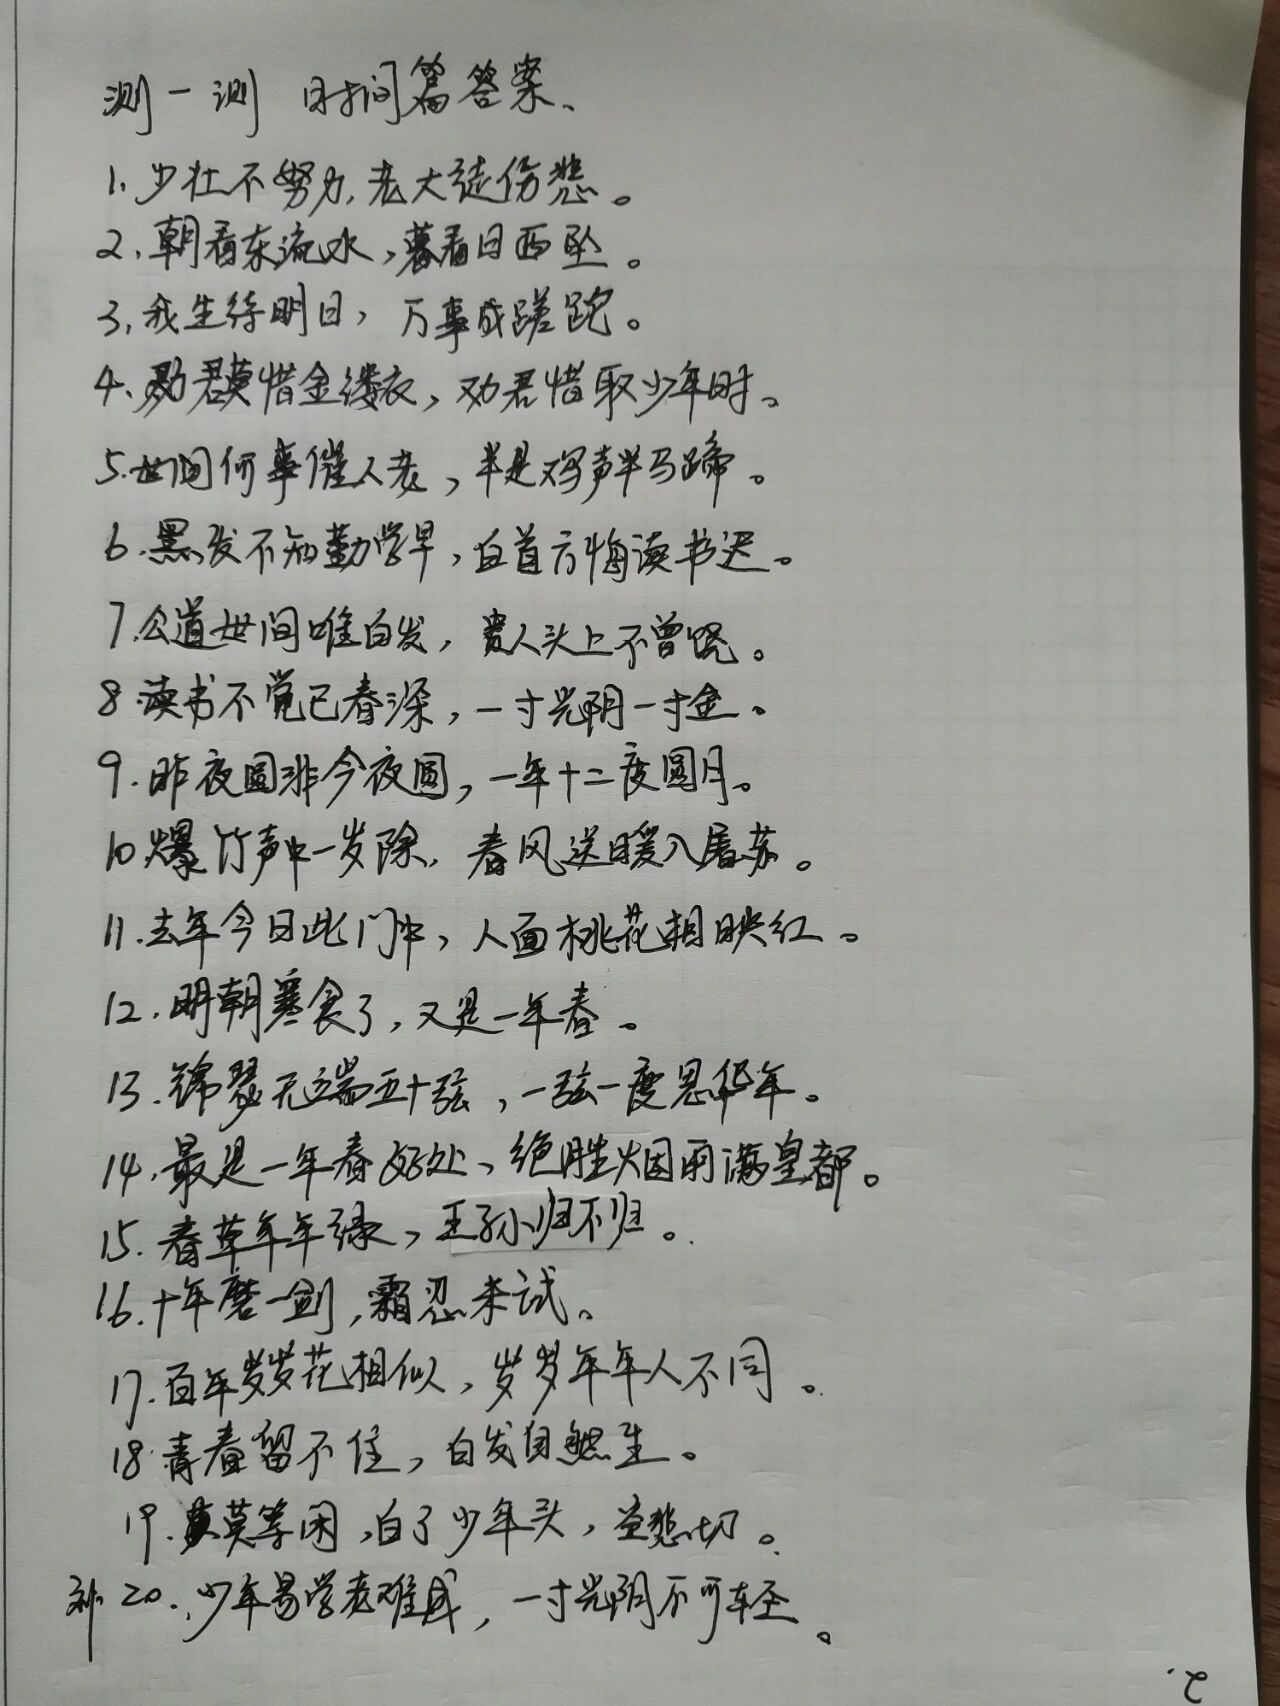 测一测 时间篇答案、
1、少壮不努力,老大徒伤悲。
2、朝看东流水,暮看日西坠。
3、我生待明日,万事成蹉跎。
4、劝君莫惜金缕衣,劝君惜取少年时。
5.世间何事催人老,半是鸡声半马蹄。
6.黑发不知勤学早,白首方悔读书迟。
7.公道世间唯白发,贵人头上不曾饶。
8.读书不觉已春深,一寸光阴一寸金。
9.昨夜圆非今夜圆,一年十二度圆月。
10爆竹声中一岁除,春风送暖入屠苏。
11.去年今日此门中,人面桃花相映红。
12.明朝寒食了,又是一年春。
13.锦瑟无端五十弦,一弦一度思华年。
14.最是一年春好处、绝胜烟雨满皇都。
15.春草年年绿,王孙归不归。
16.十年磨一剑,霜忍未试。
17.百年岁岁花相似,岁岁年年人不同。
18.青春留不住,白发自然生。
19.莫等闲,白了少年头,空悲切。
补20.少年易学老难成,一寸光阴不可轻。
2.